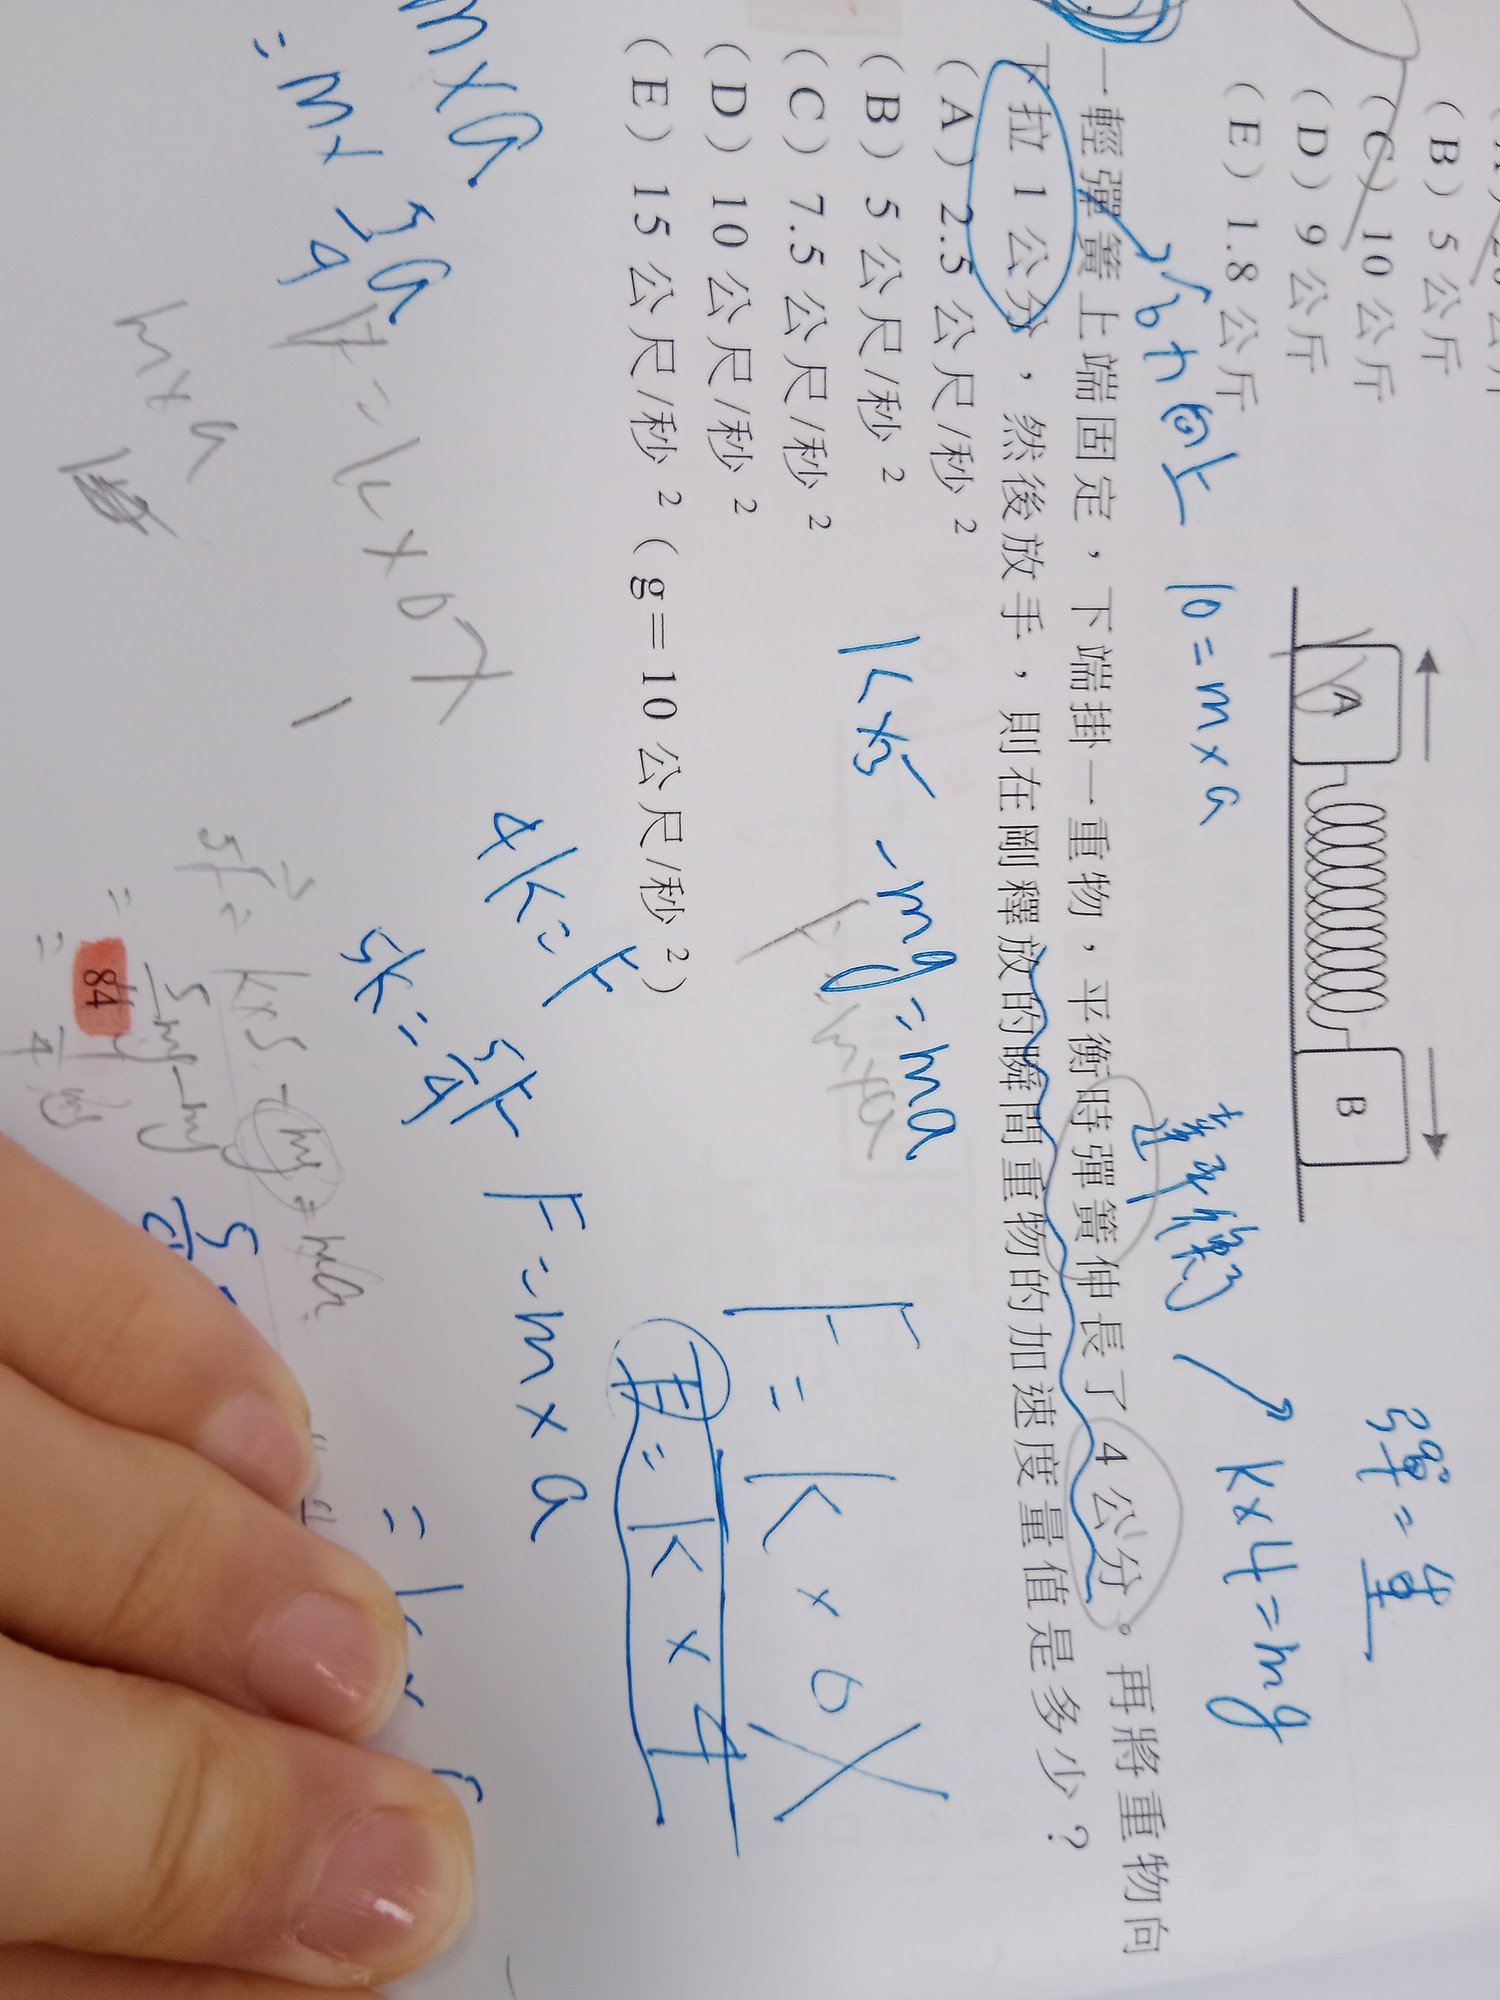 (B) 5 公斤
(C) 10 公斤
(D) 9 公斤
(E) 1.8 公斤
A
B
彈=重
10=m×a
k×4=mg
一輕彈簧上端固定,下端掛一重物,平衡時彈簧伸長了 4 公分。再將重物向
下拉 1 公分,然後放手,則在剛釋放的瞬間重物的加速度量值是多少?
(A) 2.5 公尺/秒²
(B) 5 公尺/秒²
(C) 7.5 公尺/秒²
(D) 10 公尺/秒²
(E) 15 公尺/秒² (g=10 公尺/秒²)
k×5-mg=ma
F=m×a
F=k×ΔX
F=k×4
4k=F
5k=5/4F
F=m×a
m×a
=m×5/4a
F=k×Δx
m×a
k×5-mg=ma
84